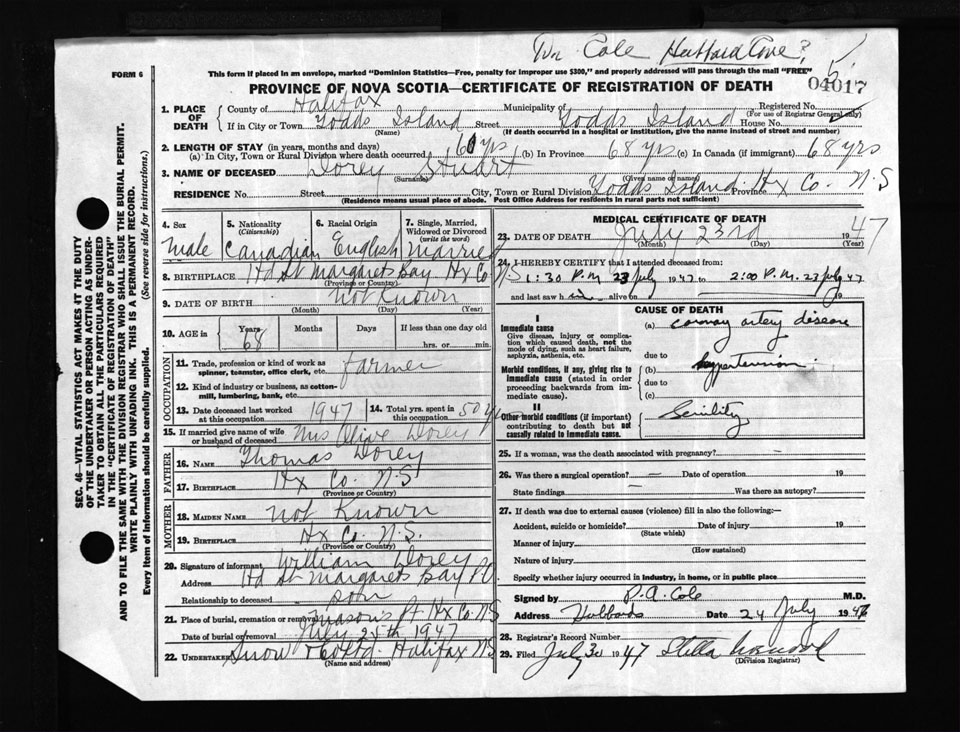 Dr Cole Hubbard Cove?
FORM 6
This form if placed in an envelope, marked "Dominion Statistics—Free, penalty for improper use $300," and properly addressed will pass through the mail "FREE"
04017
PROVINCE OF NOVA SCOTIA—CERTIFICATE OF REGISTRATION OF DEATH
1. PLACE OF DEATH County of Halifax Municipality of Registered No. (For use of Registrar General only)
If in City or Town Yodds Island Street Yodds Island House No.
(Name) (If death occurred in a hospital or institution, give the name instead of street and number)
2. LENGTH OF STAY (in years, months and days)
(a) In City, Town or Rural Division where death occurred 60 yrs (b) In Province 68 yrs (c) In Canada (if immigrant) 68 yrs
3. NAME OF DECEASED Dorey Stuart
(Surname) (Given name or names)
RESIDENCE No. Street City, Town or Rural Division Yodds Island Hx Co. Province N.S
(Residence means usual place of abode. Post Office Address for residents in rural parts not sufficient)
4. Sex 5. Nationality (Citizenship) 6. Racial Origin 7. Single, Married, Widowed or Divorced (write the word)
male Canadian English Married
8. BIRTHPLACE Hd St Margarets Bay Hx Co N/S
(Province or Country)
9. DATE OF BIRTH not Known
(Month) (Day) (Year)
10. AGE in Years Months Days If less than one day old
68 hrs. or min.
OCCUPATION
11. Trade, profession or kind of work as spinner, teamster, office clerk, etc. farmer
12. Kind of industry or business, as cotton-mill, lumbering, bank, etc.
13. Date deceased last worked at this occupation 1947 14. Total yrs. spent in this occupation 50 yrs
15. If married give name of wife or husband of deceased Mrs Olive Dorey
FATHER
16. NAME Thomas Dorey
17. BIRTHPLACE Hx Co N.S
(Province or Country)
MOTHER
18. MAIDEN NAME not Known
19. BIRTHPLACE Hx Co. N.S.
(Province or Country)
20. Signature of informant William Dorey
Address Hd St Margarets Bay PO
Relationship to deceased son
21. Place of burial, cremation or removal Masons Pt Hx Co NS
Date of burial or removal July 25th 1947
22. UNDERTAKER Snow & Co Ltd. Halifax NS
(Name and address)
MEDICAL CERTIFICATE OF DEATH
23. DATE OF DEATH July 23rd 1947
(Month) (Day) (Year)
24. I HEREBY CERTIFY that I attended deceased from:
1:30 P.M. 23 July 1947 to 2:00 P.M. 23 July 47
and last saw h im alive on 19
CAUSE OF DEATH
I
Immediate cause (a) coronary artery disease
Give disease, injury or complication which caused death, not the mode of dying, such as heart failure, asphyxia, asthenia, etc.
due to
Morbid conditions, if any, giving rise to immediate cause (stated in order proceeding backwards from immediate cause).
(b) hypertension
due to
(c)
II
Other morbid conditions (if important) contributing to death but not causally related to immediate cause. Senility
25. If a woman, was the death associated with pregnancy? —
26. Was there a surgical operation? — Date of operation 19
State findings — Was there an autopsy?
27. If death was due to external causes (violence) fill in also the following:—
Accident, suicide or homicide? Date of injury 19
(State which)
Manner of injury
(How sustained)
Nature of injury
Specify whether injury occurred in industry, in home, or in public place
Signed by P.A. Cole M.D.
Address Hubbards Date 24 July 1947
28. Registrar's Record Number
29. Filed July 30 1947 Stella
(Division Registrar)
SEC. 46—VITAL STATISTICS ACT MAKES IT THE DUTY
OF THE UNDERTAKER OR PERSON ACTING AS UNDER-
TAKER TO OBTAIN ALL THE PARTICULARS REQUIRED
IN THE "CERTIFICATE OF REGISTRATION OF DEATH"
AND TO FILE THE SAME WITH THE DIVISION REGISTRAR WHO SHALL ISSUE THE BURIAL PERMIT.
WRITE PLAINLY WITH UNFADING INK. THIS IS A PERMANENT RECORD.
Every Item of Information should be carefully supplied. (See reverse side for instructions.)